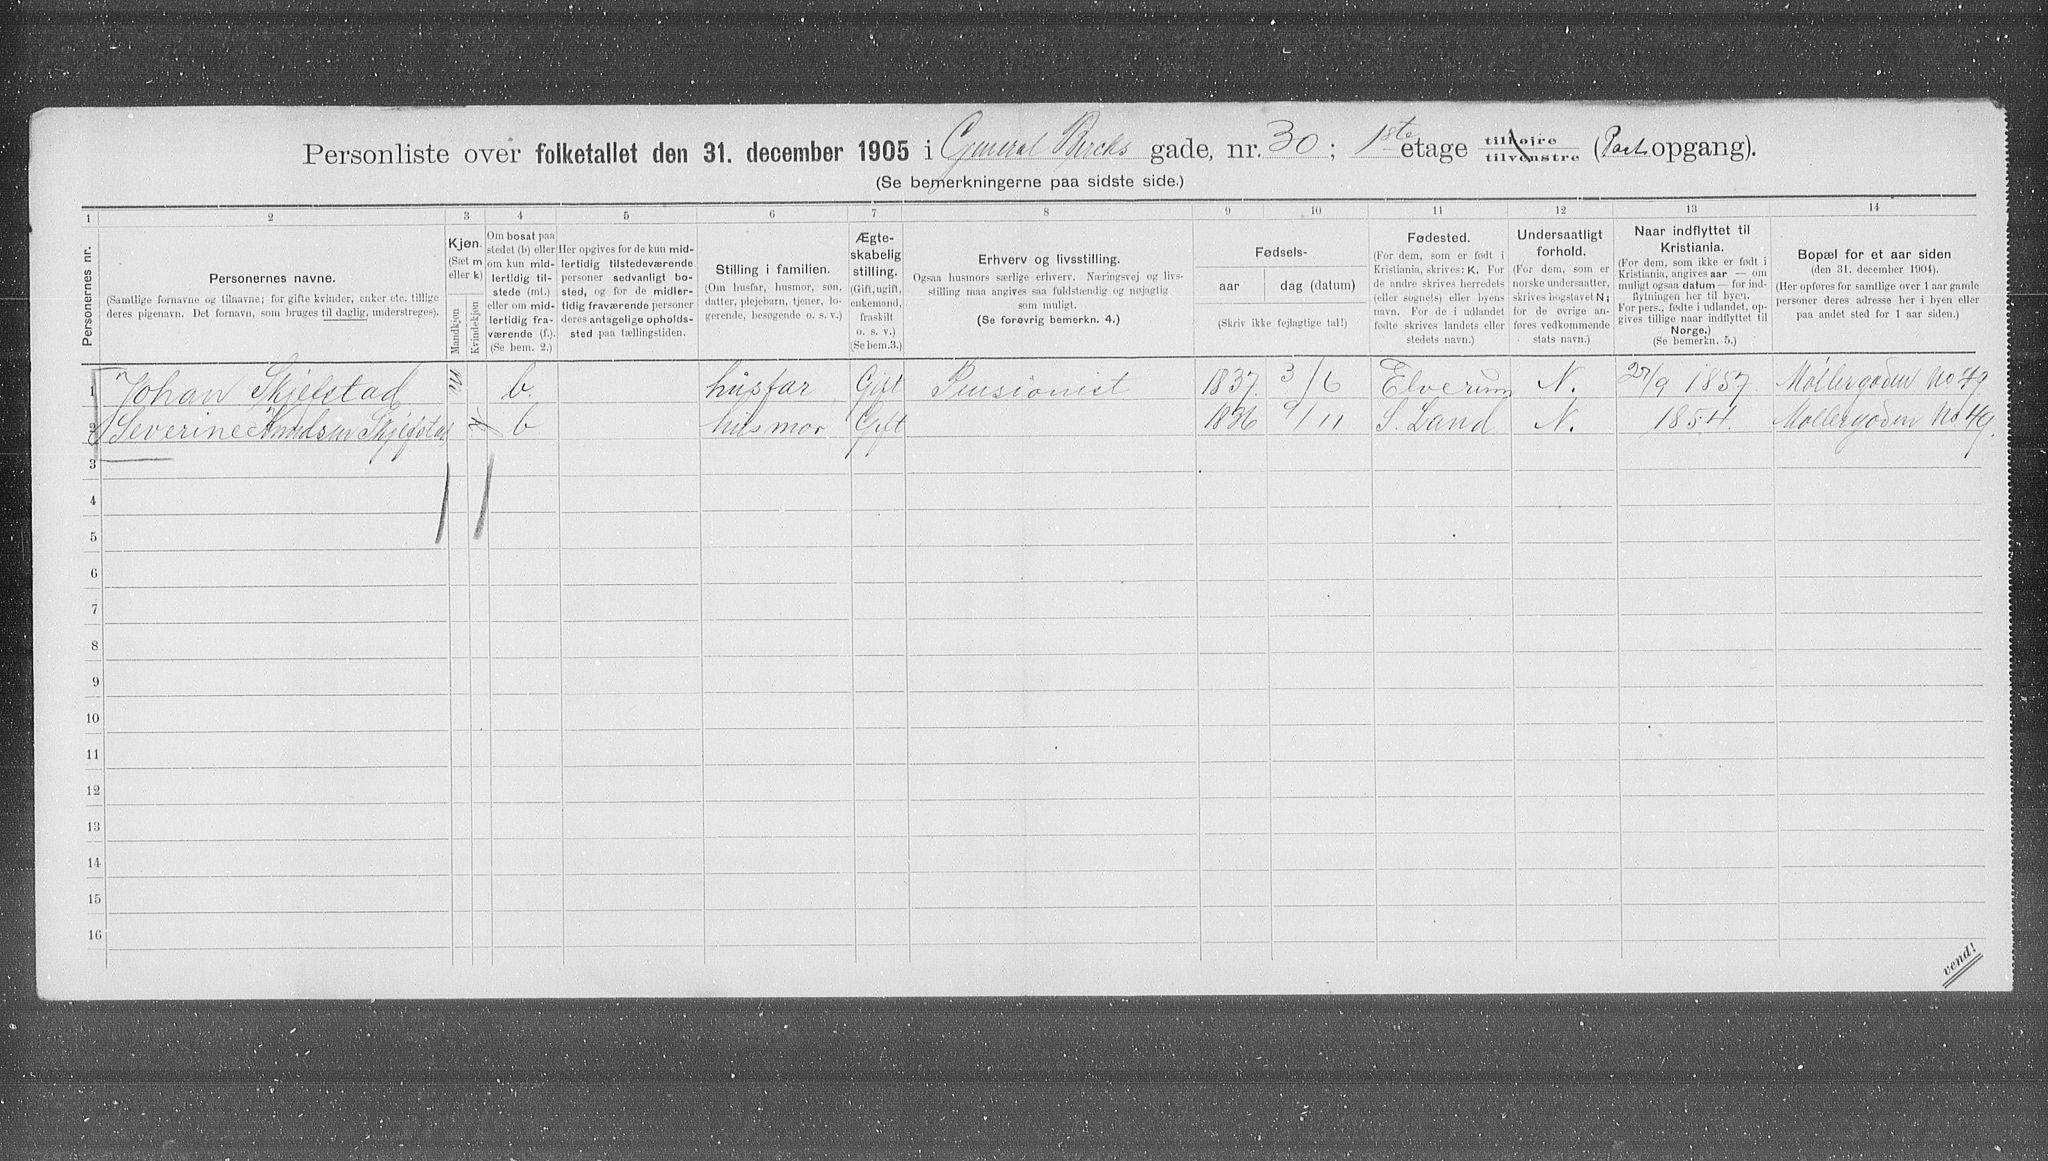 Personliste over folketallet den 31. december 1905 i General Bircks gade, nr. 30; 1ste etage tilhøjre tilvenstre (Port opgang).
(Se bemerkningerne paa sidste side.)
1 2 3 4 5 6 7 8 9 10 11 12 13 14
Personernes nr.
Personernes navne.
(Samtlige fornavne og tilnavne; for gifte kvinder, enker etc. tillige
deres pigenavn. Det fornavn, som bruges til daglig, understreges).
Kjøn.
(Sæt m
eller k)
Mandkjøn
Kvindekjøn
Om bosat paa
stedet (b) eller
om kun mid-
lertidig til-
stede (mt.)
eller om mid-
lertidig fra-
værende (f.).
(Se bem. 2.)
Her opgives for de kun mid-
lertidig tilstedeværende
personer sedvanligt bo-
sted, og for de midler-
tidig fraværende personer
deres antagelige opholds-
sted paa tællingstiden.
Stilling i familien.
(Om husfar, husmor, søn,
datter, plejebarn, tjener, lo-
gerende, besøgende o. s. v.)
Ægte-
skabelig
stilling.
(Gift, ugift,
enkemand,
fraskilt
o. s. v.)
(Se bem. 3.)
Erhverv og livsstilling.
Ogsaa husmors særlige erhverv. Næringsvej og livs-
stilling maa angives saa fuldstændig og nøjagtig
som muligt.
(Se forøvrig bemerkn. 4.)
Fødsels-
aar dag (datum)
(Skriv ikke fejlagtige tal!)
Fødested.
(For dem, som er født i
Kristiania, skrives: K. For
de andre skrives herredets
(eller sognets) eller byens
navn. For de i udlandet
fødte skrives landets eller
stedets navn.)
Undersaatligt
forhold.
(For dem, som er
norske undersaatter,
skrives bogstavet N;
for de øvrige an-
føres vedkommende
stats navn.)
Naar indflyttet til
Kristiania.
(For dem, som ikke er født i
Kristiania, angives aar — om
muligt ogsaa datum — for ind-
flytningen her til byen.
For pers., fødte i udlandet, op-
gives tillige naar indflyttet til
Norge.)
(Se bemerkn. 5.)
Bopæl for et aar siden
(den 31. december 1904).
(Her opføres for samtlige over 1 aar gamle
personer deres adresse her i byen eller
paa andet sted for 1 aar siden.)
1 Johan Skjefstad m b. husfar Gift Pensionist 1837. 3/6 Elverum N. 27/9 1857 Møllergaden No 49
2 Severine Knudsen Skjefstad k b husmor Gift 1836 9/11 S. Land N. 1854. Møllergaden No 49.
3
4
5
6
7
8
9
10
11
12
13
14
15
16
vend!